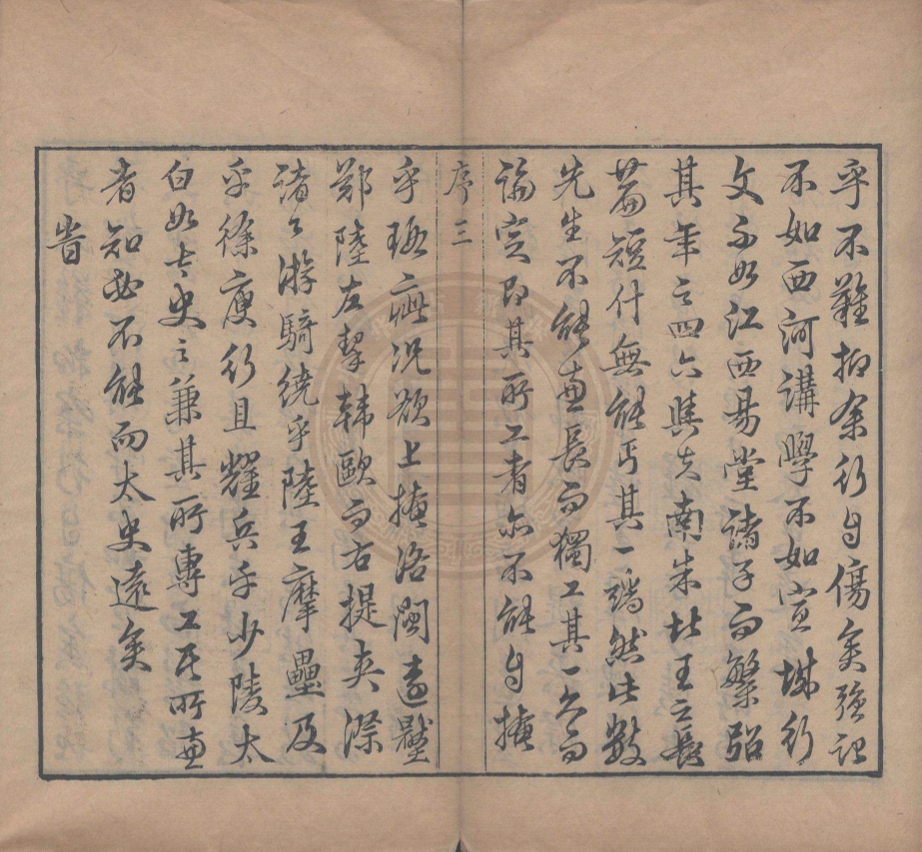 乎不難抑余行自傷矣強記
不如西河講學不如宣城行
文不如江西易堂諸子而繁弨
其年之四六與夫南朱北王之長
篇短什無能丐其一端然此數
先生不能兼長而獨工其一久而
論定即其所工者亦不能自掩
序三
乎瑕疵況欲上掩洛閩遠躐
鄭陸左挈韓歐而右提夾漈
諸公游騎繞乎陸王摩壘及
乎徐庾行且耀兵乎少陵太
白如太史之兼其所專工其所兼
者知必不能而太史遠矣
昔